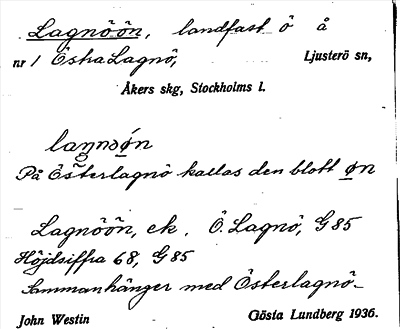 Lagnöön, landfast ö å
nr 1 Östra Lagnö, Ljusterö sn,
Åkers skg, Stockholms l.
laŋnøn
På Österlagnö kallas den blott øn
Lagnöön, ek. Ö. Lagnö, G 85
Höjdsiffra 68, G 85
Sammanhänger med Österlagnö.
John Westin Gösta Lundberg 1936.